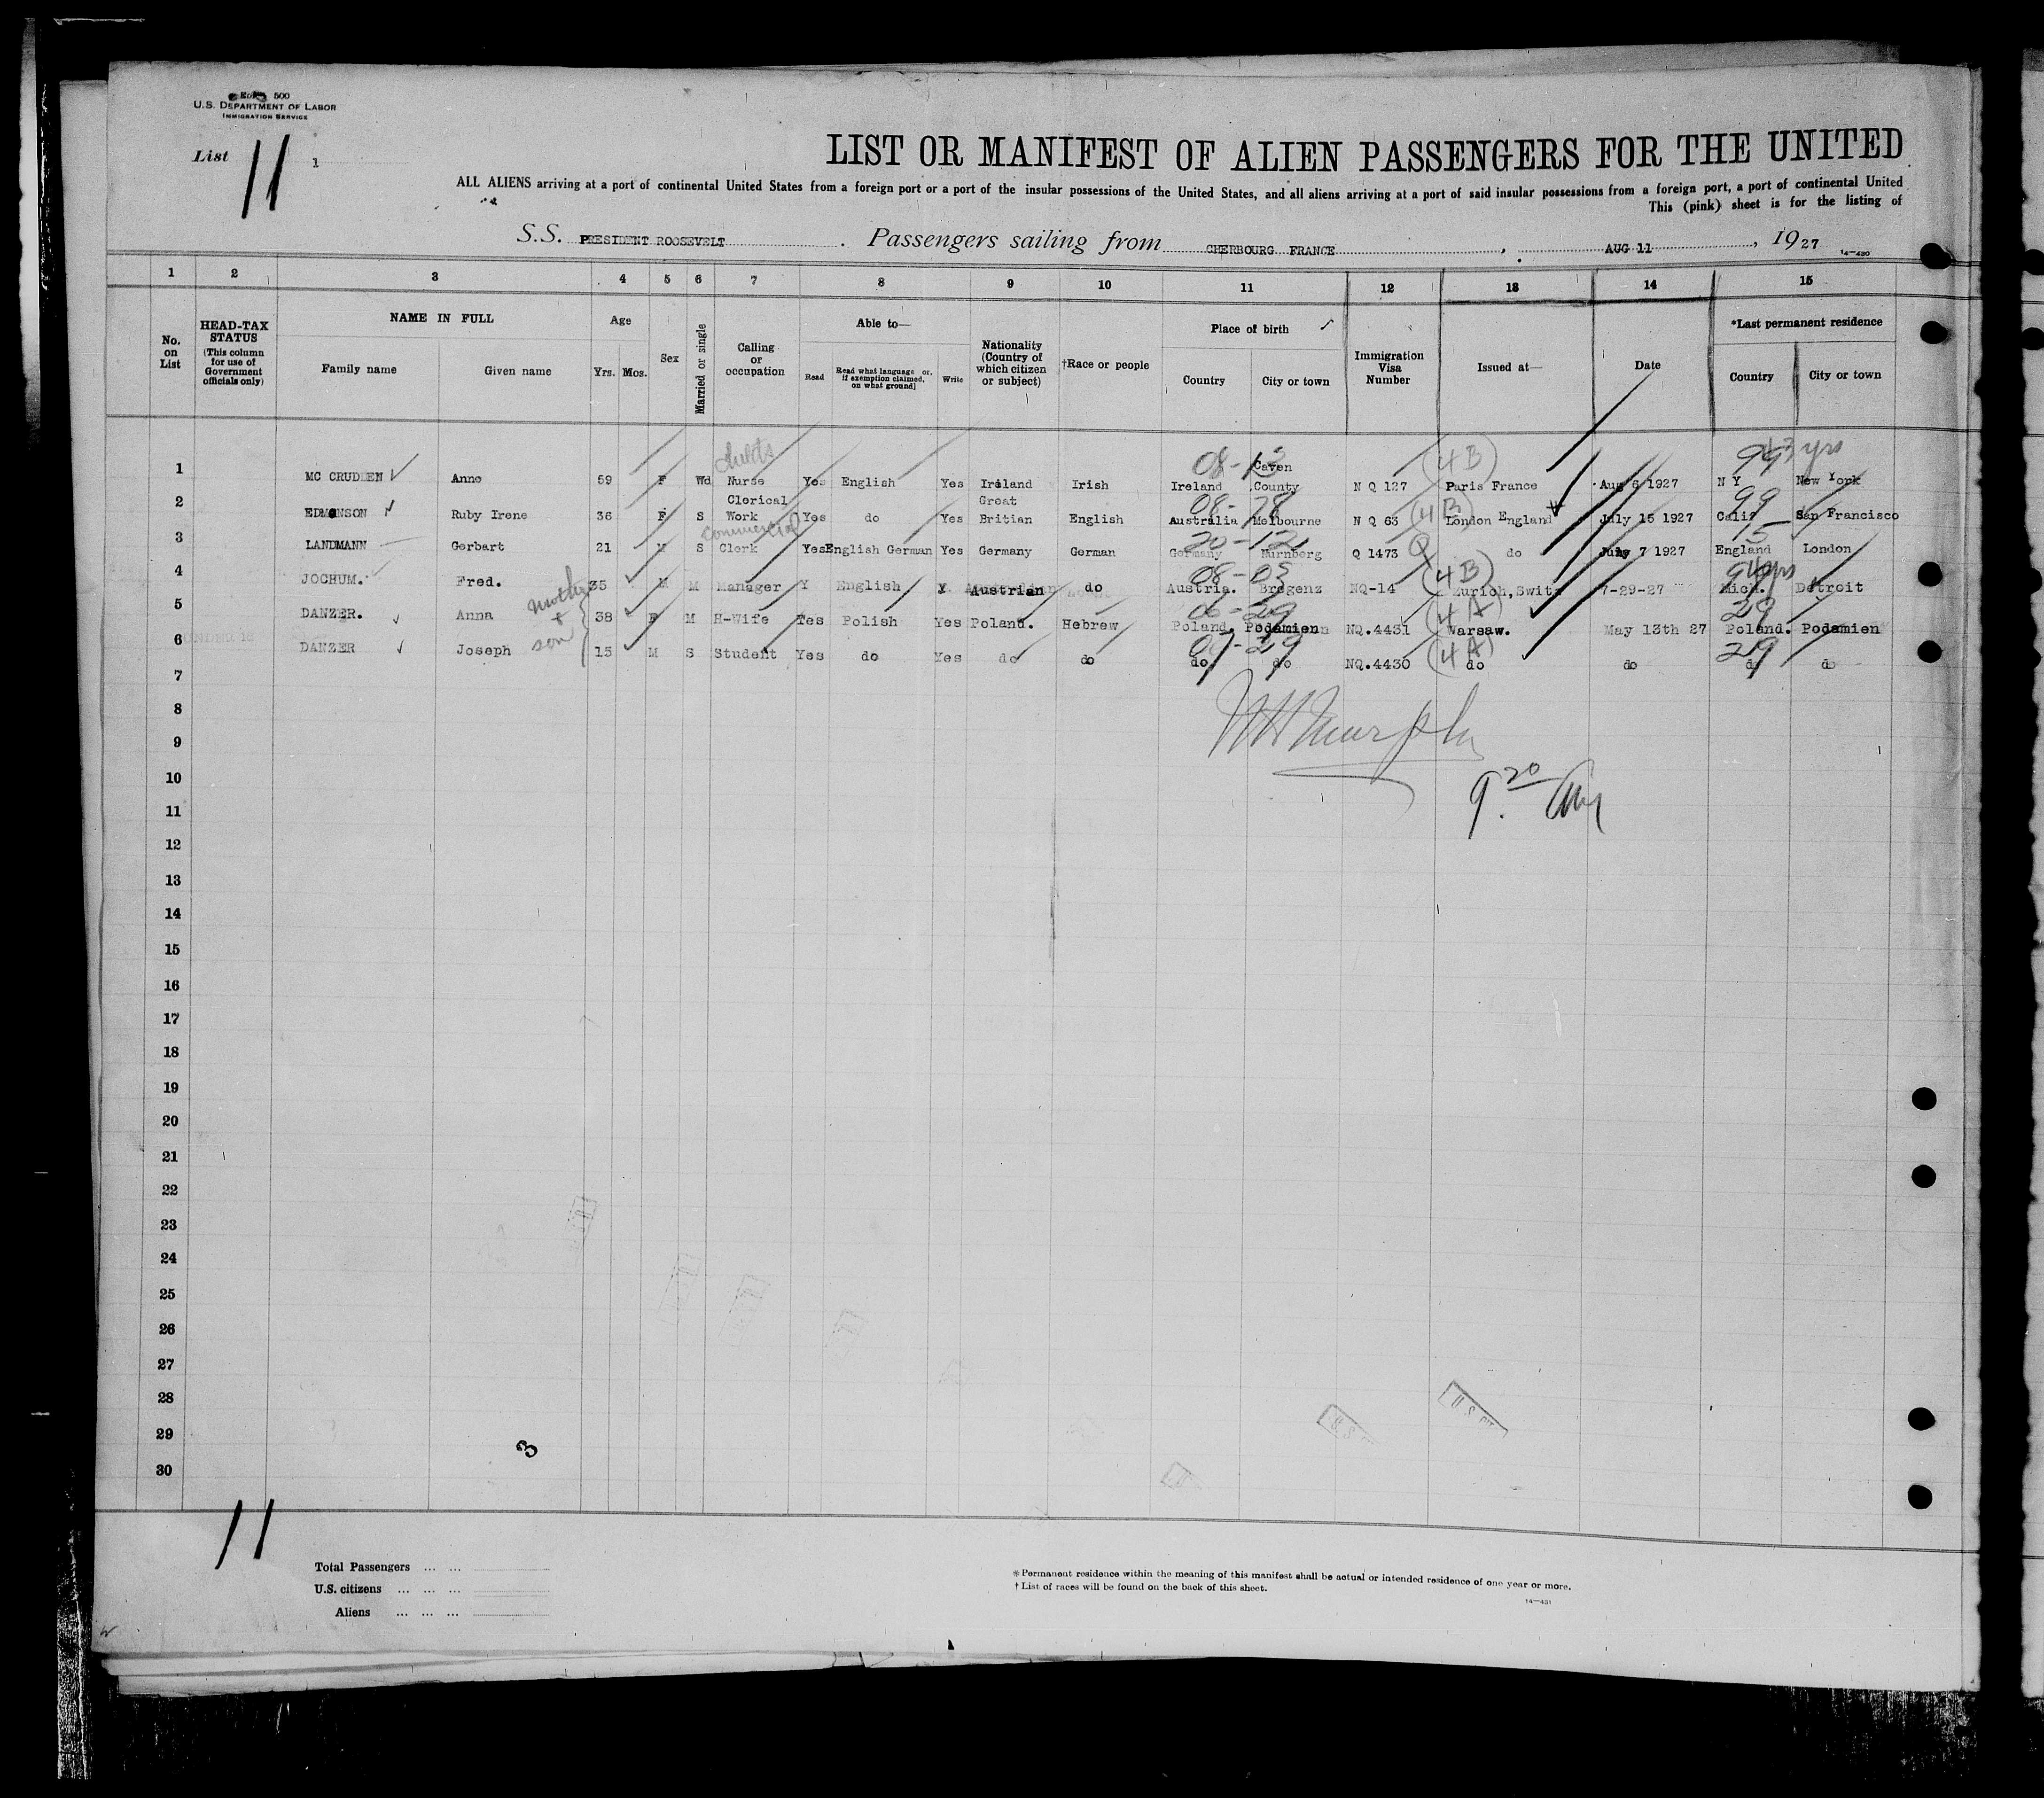 500
U.S. DEPARTMENT OF LABOR
IMMIGRATION SERVICE
List 11 1
LIST OR MANIFEST OF ALIEN PASSENGERS FOR THE UNITED
ALL ALIENS arriving at a port of continental United States from a foreign port or a port of the insular possessions of the United States, and all aliens arriving at a port of said insular possessions from a foreign port, a port of continental United
This (pink) sheet is for the listing of
S.S. PRESIDENT ROOSEVELT. Passengers sailing from CHERBOURG FRANCE, AUG 11, 1927
14—430
1 2 3 4 5 6 7 8 9 10 11 12 13 14 15
No. on List
HEAD-TAX STATUS (This column for use of Government officials only)
NAME IN FULL
Family name Given name
Age
Yrs. Mos.
Sex
Married or single
Calling or occupation
Able to—
Read Read what language or, if exemption claimed, on what ground) Write
Nationality (Country of which citizen or subject)
†Race or people
Place of birth
Country City or town
Immigration Visa Number
Issued at—
Date
*Last permanent residence
Country City or town
08-13 (4B) 99 43 yrs
1 MC CRUDDEN Anne 59 F Wd Nurse Yes English Yes Ireland Irish Ireland Caven County N Q 127 Paris France Aug 6 1927 N Y New York
08-78 (4B) 99
2 EDMONSON Ruby Irene 36 F S Clerical Work Yes do Yes Great Britian English Australia Melbourne N Q 63 London England July 15 1927 Calif San Francisco
commercial 20-12 Q 15
3 LANDMANN Gerbart 21 M S Clerk Yes English German Yes Germany German Germany Nurnberg Q 1473 do July 7 1927 England London
08-03 (4B)
4 JOCHUM. Fred. 35 M M Manager Y English Y Austrian do Austria. Bregenz NQ-14 Zurich, Switz 7-29-27 Mich. Detroit
mother + son
06-29 (4A) 29
5 DANZER. Anna 38 F M H-Wife Yes Polish Yes Poland. Hebrew Poland, Podamien NQ.4431 Warsaw. May 13th 27 Poland. Podamien
(4A) 29
6 DANZER Joseph 15 M S Student Yes do Yes do do do do NQ.4430 do do do do
7
8
9
10
11
12
13
14
15
16
17
18
19
20
21
22
23
24
25
26
27
28
29
30
9.20 AM
3
11
Total Passengers ... ...
U.S. citizens ... ... ...
Aliens ... ... ...
* Permanent residence within the meaning of this manifest shall be actual or intended residence of one year or more.
† List of races will be found on the back of this sheet.
14—431